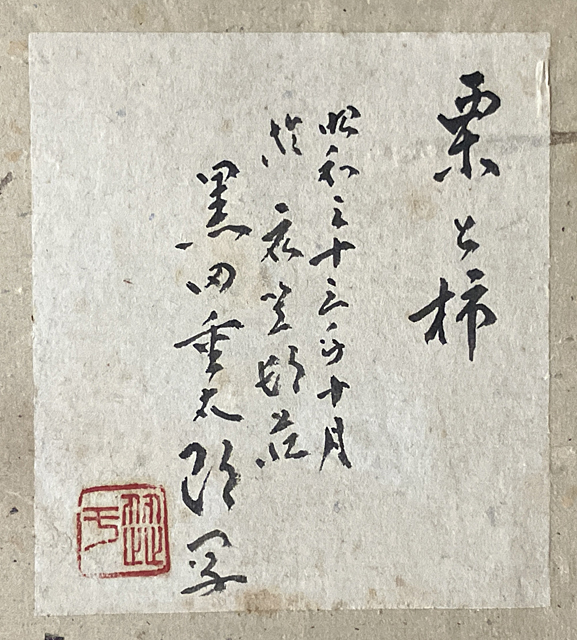 栗と柿
昭和三十三年十月
於 衣笠邨荘
黒田重太郎写